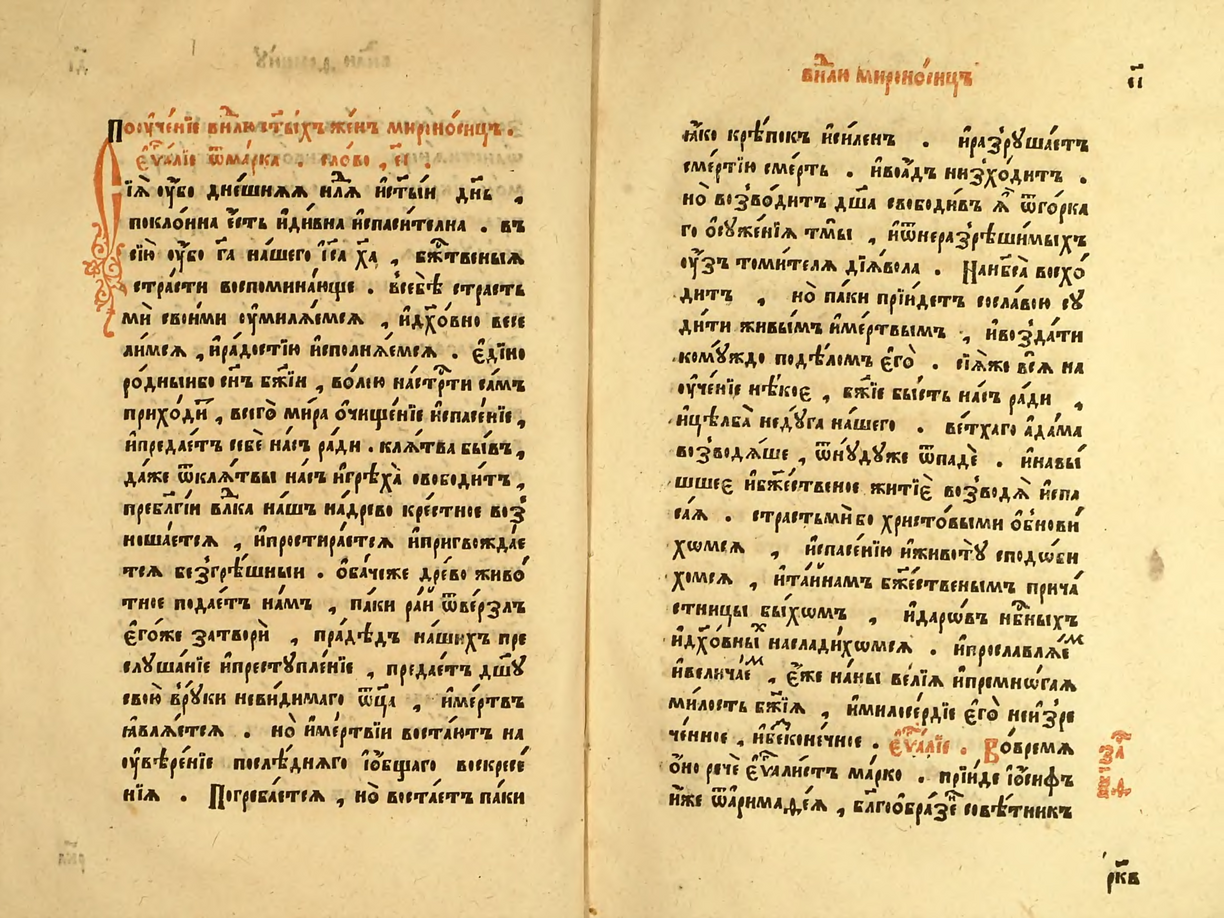 Поꙋче́нїе вн҃лю ст҃ы́хъ же́нъ мироно́сицъ .
є҆ѵⷢ҇а́лїе ѿ ма́рка . сло́во , є҃і .
Сїѧ̀ ᲂу҆́бо дне́шнѧѧ нлⷣѧ и҆ст҃ы́и дн҃ь ,
покло́нна є҆́сть и҆ди́вна и҆спаси́телна . въ
сїю̀ ᲂу҆́бо гⷭ҇а на́шего і҆и҃са хⷭ҇а̀ , бжⷭ҇твеныѧ
стра́сти воспомина́юще . в̾себѣ̀ страсть
мѝ свои́ми ᲂу҆милѧ́емсѧ , и҆дх҃о́вно весе
ли́мсѧ , и҆ра́достїю и҆сполнѧ́емсѧ . є҆ди́но
ро́дныибо сн҃ъ бж҃їи , во́лею настрⷭ҇ти са́мъ
прихо́дѝ , всего̀ ми́ра ѻ҆чище́нїе и҆спасе́нїе ,
и҆предае́тъ себѐ на́съ ра́ди . клѧ́тва бы́въ ,
да́же ѿклѧ́твы на́съ и҆грѣха̀ свободи́тъ ,
преблг҃і́и влⷣка на́шъ на́древо кре́стное воз̾
ноша́етсѧ , и҆простира́етсѧ и҆пригвожда́е
тсѧ без̾грѣ́шныи . ѻ҆ба́чеже дре́во живо́
тное подае́тъ на́мъ , па́ки ра́й ѿве́рзлъ
є҆го́же затворѝ , пра́дѣдъ на́шихъ пре
слꙋша́нїе и҆престꙋпле́нїе , предае́тъ дш҃ꙋ
свою̀ в̾рꙋ́ки неви́димаго ѻ҆ц҃а , и҆ме́ртвъ
ꙗ҆влѧ́етсѧ . но̀ и҆ме́ртвїи воста́ютъ на
ᲂу҆вѣре́нїе послѣ́днѧго і҆ѻ҆́бщаго воскресе́
нїѧ . Погреба́етсѧ , но̀ востае́тъ па́ки
внⷣлю мироно́сицъ
є҃і
ꙗ҆́ко крѣ́покъ и҆си́ленъ . и҆раз̾рꙋша́етъ
сме́ртїю сме́рть . и҆во а́дъ низ̾хо́дитъ .
но̀ воз̾во́дитъ дш҃а свободи́въ ѧ҆̀ ѿго́рка
го ѻ҆сꙋже́нїѧ тмы̀ , и҆ѿнераз̾рѣши́мыхъ
ᲂу҆́зъ томи́телѧ дїѧ́вола . На нб҃са̀ восхо́
дитъ , но̀ па́ки прїи́детъ сосла́вою сꙋ
ди́ти живы́мъ и҆ме́ртвымъ , и҆воз̾да́ти
комꙋ́ждо подѣло́мъ є҆го̀ . сїѧ́же всѧ̀ на
ᲂу҆че́нїе нѣ́кое , бж҃їе бы́сть на́съ ра́ди ,
и҆цѣлба̀ недꙋ́га на́шего . ве́тхаго а҆да́ма
воз̾водѧ́ше , ѿнꙋ́дꙋже ѿпадѐ . и҆навы́
шшее и҆бж҃е́ственое житїѐ воз̾водѧ̀ и҆спа
саѧ . страстьмѝбо христо́выми ѻ҆бнови́
хѡмсѧ , и҆спасе́нїю и҆живо́тꙋ сподо́би
хомсѧ , и҆та́йнамъ бж҃е́ственымъ прича́
стницы бы́хѡмъ , и҆даро́въ нбⷭ҇ныхъ
и҆дх҃о́вныⷯ наслади́хѡмсѧ . и҆прославлѧ́еⷨ
и҆велича́еⷨ , є҆́же на́ны ве́лїѧ и҆премнѡ́гаѧ
ми́лость бж҃їѧ , и҆милосе́рдїе є҆го̀ неиз̾ре
че́нное , и҆бесконе́чное . є҆ѵⷢ҇а́лїе . Во вре́мѧ
ѻ҆́но речѐ є҆ѵⷢ҇али́стъ ма́рко . прїи́де і҆ѡ́сифъ
и҆́же ѿарима́ѳеѧ , бл҃гоѻбра́зенъ совѣ́тникъ
заⷱ҇
рк҃в